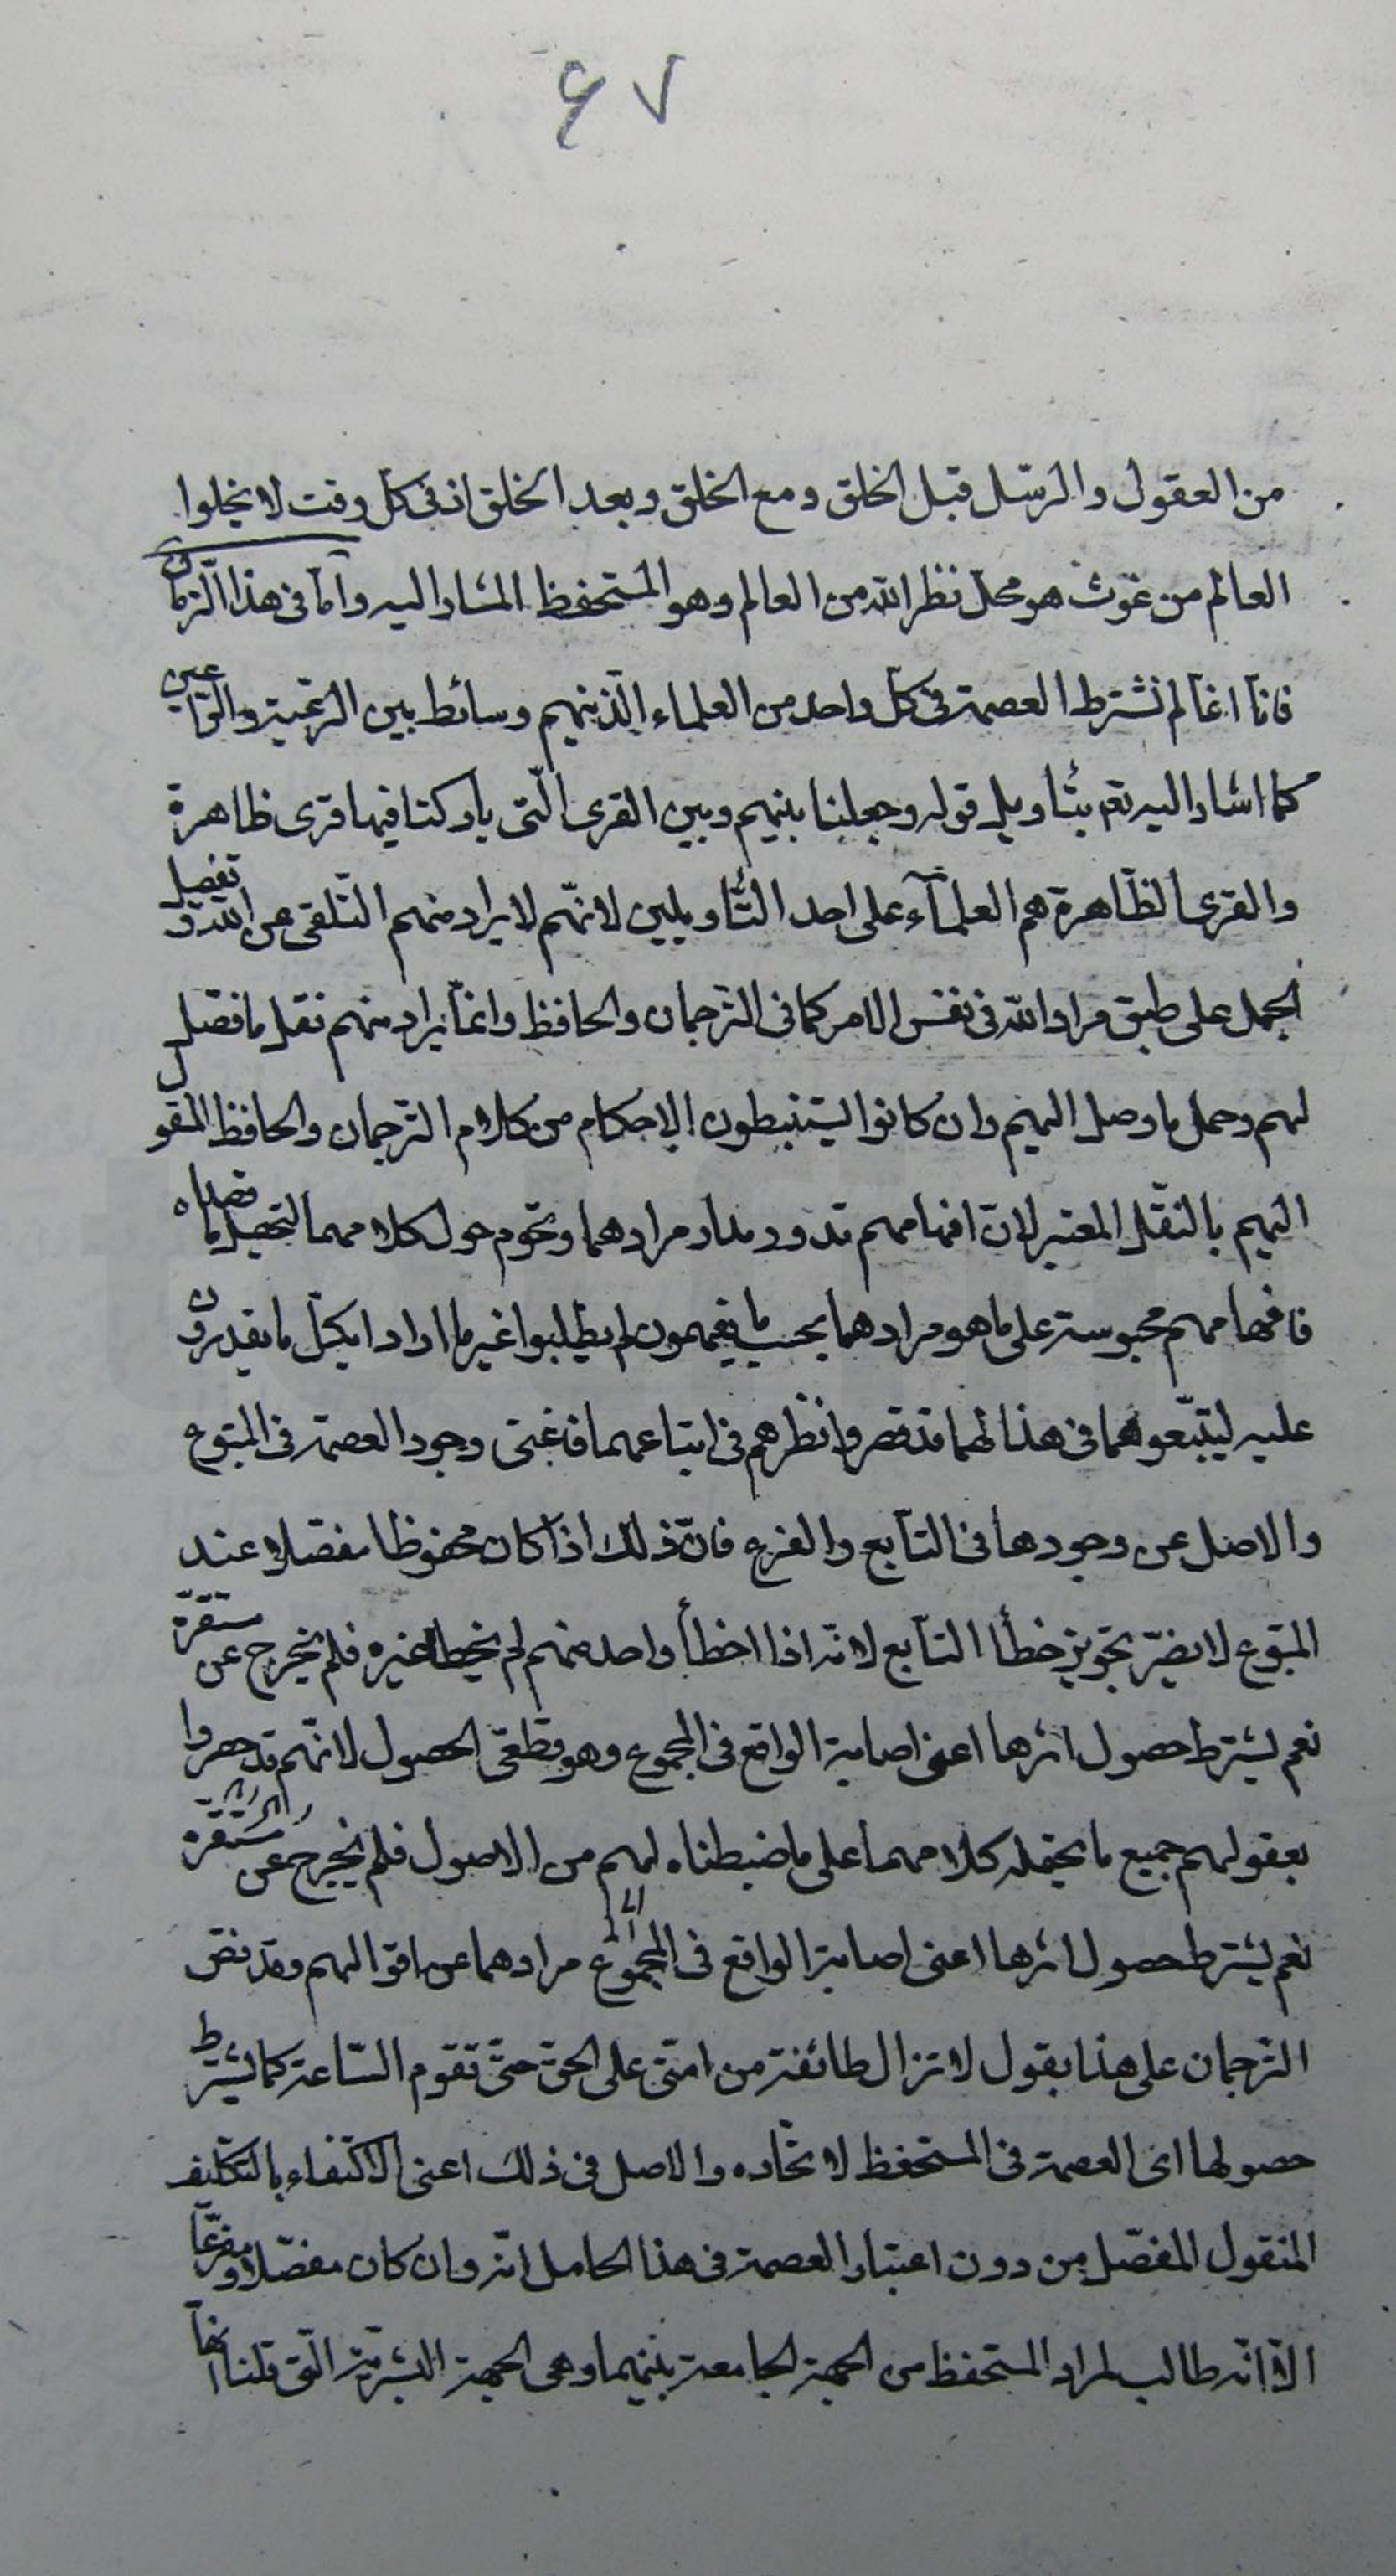 ٤٧
من العقول والرسل قبل الخلق ومع الخلق وبعد الخلق اذ فى كل وقت لا يخلوا
العالم من غوث هو محل نظر الله من العالم وهو المستحفظ المشار اليه وامّا فى هذا الزمان
فانّا انمّا لم نشترط العصمة فى كل واحد من العلماء الّذينهم وسائط بين الرّعيّة والرّاعين
كما اشار اليه تعم بتأويل قوله وجعلنا بينهم وبين القرى الّتى باركنا فيها قرى ظاهرة
والقرى الظّاهرة هم العلمآء على احد التّأويلين لانّهم لا يراد منهم التلقى عن الله وتفصيل
الجمل على طبق مراد الله فى نفس الامر كما فى الترجمان والحافظ وانمّا يراد منهم نقل ما فصل
لهم وحمل ما وصل اليهم وان كانوا يستنبطون الاحكام من كلام الترجمان والحافظ المنقول
اليهم بالنقل المعتبر لان افهامهم تدور مدار مرادهما وتحوم حول كلامهما لتحصيل ما قصداه
فافهامهم محبوسة على ما هو مرادهما بحسب ما يفهمون لم يطلبوا غير ما ارادا بكل ما يقدرون
عليه ليتبّعوهما فى هذا لهما قد قصروا نظرهم فى اتباعهما فاغنى وجود العصمة فى المتبوع
والاصل عن وجودها فى التّابع والفرع فانّ ذلك اذا كان محفوظا مفصّلا عند
المتبوع لا يضرّ تجويز خطأ التّابع لانّه اذا اخطأ واحد منهم لم يخطأ غيره فلم يخرج عن مستقرّه
نعم يشترط حصول اثرها اعنى اصابة الواقع فى المجموع وهو قطعىّ الحصول لانّهم قد حصروا
بعقولهم جميع ما يحتمله كلامهما على ما ضبطناه لهم من الاصول فلم يخرج عن مستقرّه
نعم يشترط حصول اثرها اعنى اصابة الواقع فى المجموع مرادهما عن اقوالهم وقد نصّ
الترجمان على هذا بقول لا تزال طائفة من امتى على الحق حتّى تقوم السّاعة كما يشترط
حصولها اى العصمة فى المستحفظ لاتّحاده والاصل فى ذلك اعنى الاكتفاء بالتكليف
المنقول المفصّل من دون اعتبار العصمة فى هذا الحامل انّه وان كان مفصّلا ومفرّعا
الاّ انّه طالب لمراد المستحفظ من الجهة الجامعة بينهما وهى الجهة البشريّة الّتى قلنا انها